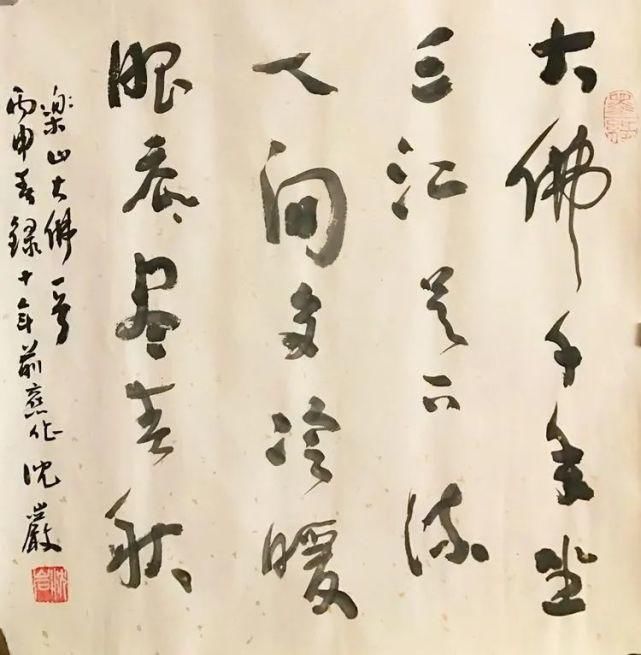 大佛千年坐
三江足下流
人间多冷暖
眼底尽春秋
樂山大佛一首
丙申春錄十年前舊作 沈巖